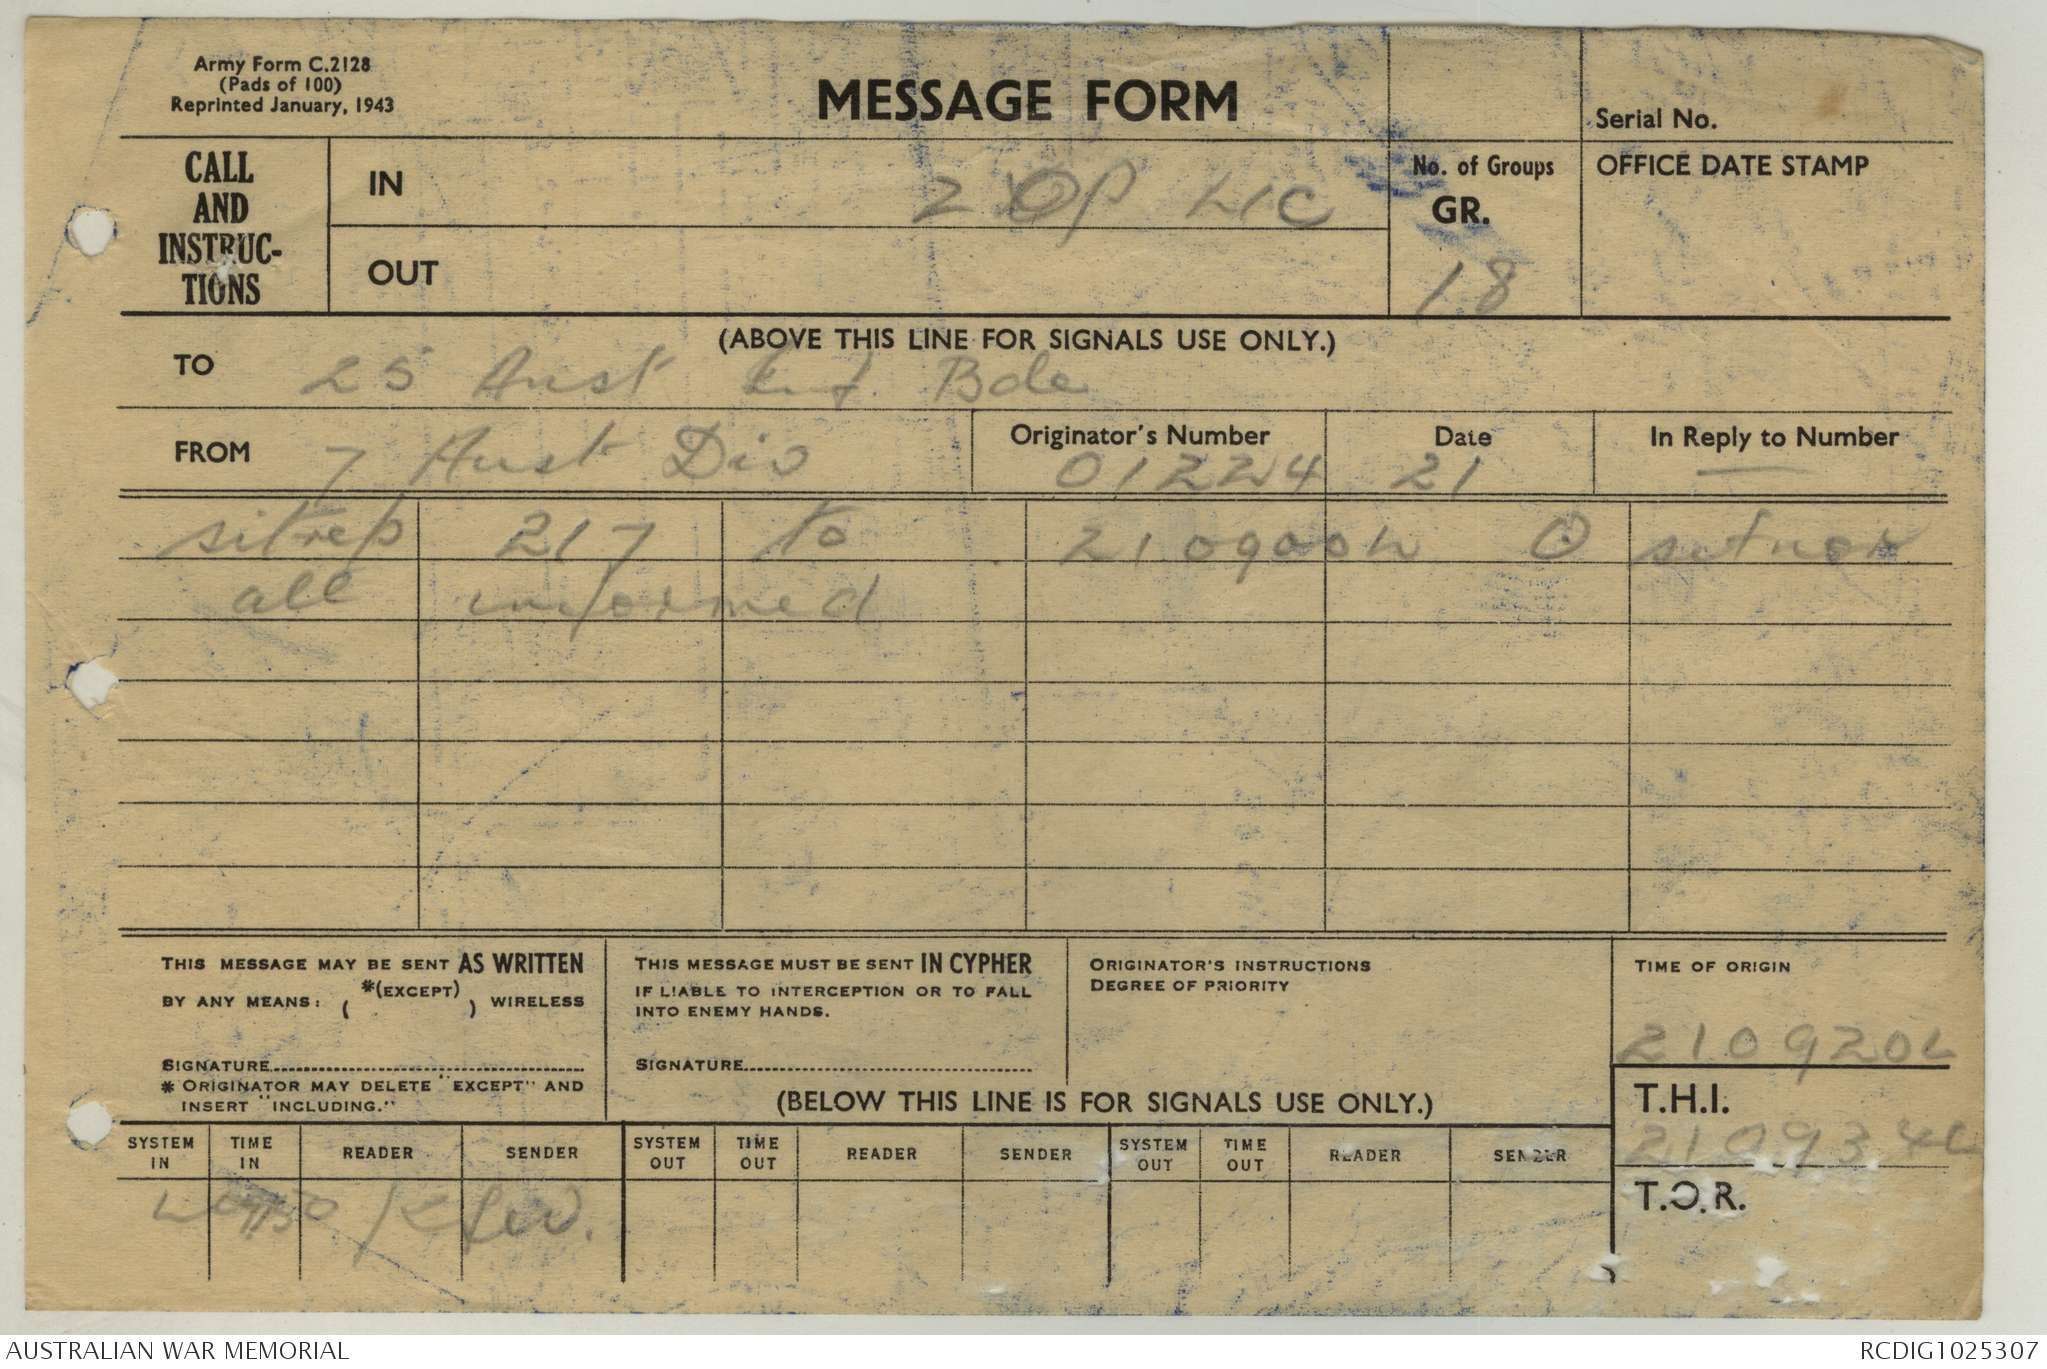 Army Form C.2128
(Pads of 100)
Reprinted January, 1943
MESSAGE FORM
Serial No.
CALL AND INSTRUC-TIONS
IN 2 OP LIC
OUT
No. of Groups
GR.
18
OFFICE DATE STAMP
(ABOVE THIS LINE FOR SIGNALS USE ONLY.)
TO 25 Aust Inf. Bde
FROM 7 Aust Div
Originator's Number 01224
Date 21
In Reply to Number —
sitrep 217 to 210900L O sitnor
all informed
THIS MESSAGE MAY BE SENT AS WRITTEN
BY ANY MEANS: ( *(EXCEPT) ) WIRELESS
SIGNATURE
* ORIGINATOR MAY DELETE "EXCEPT" AND
INSERT "INCLUDING."
THIS MESSAGE MUST BE SENT IN CYPHER
IF LIABLE TO INTERCEPTION OR TO FALL
INTO ENEMY HANDS.
SIGNATURE
ORIGINATOR'S INSTRUCTIONS
DEGREE OF PRIORITY
TIME OF ORIGIN
210920L
(BELOW THIS LINE IS FOR SIGNALS USE ONLY.)
T.H.I.
210934L
T.O.R.
SYSTEM IN TIME IN READER SENDER SYSTEM OUT TIME OUT READER SENDER SYSTEM OUT TIME OUT READER SENDER
L
AUSTRALIAN WAR MEMORIAL
RCDIG1025307